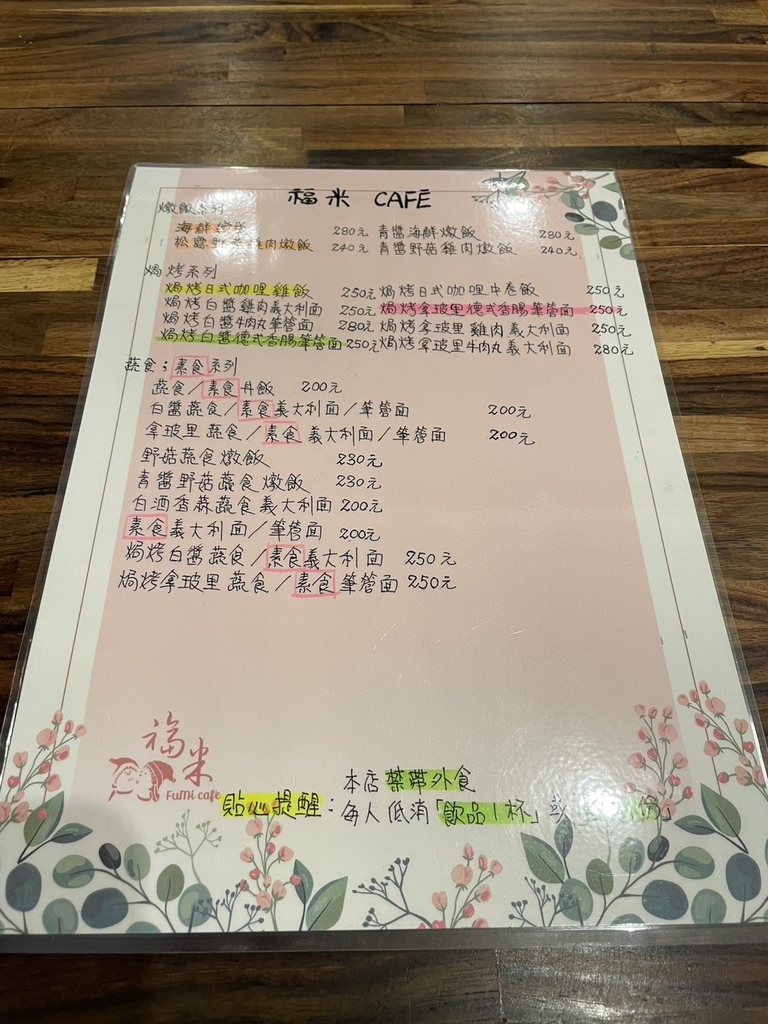 福米 CAFE
燉飯系列
海鮮燉飯 280元 青醬海鮮燉飯 280元
松露野菇雞肉燉飯 240元 青醬野菇雞肉燉飯 240元
焗烤系列
焗烤日式咖哩雞飯 250元 焗烤日式咖哩中卷飯 250元
焗烤白醬雞肉義大利面 250元 焗烤拿玻里德式香腸筆管面 250元
焗烤白醬牛肉丸筆管面 280元 焗烤拿玻里雞肉義大利面 250元
焗烤白醬德式香腸筆管面 250元 焗烤拿玻里牛肉丸義大利面 280元
蔬食；素食系列
蔬食/素食丼飯 200元
白醬蔬食/素食義大利面/筆管面 200元
拿玻里蔬食/素食義大利面/筆管面 200元
野菇蔬食燉飯 230元
青醬野菇蔬食燉飯 230元
白酒香蒜蔬食義大利面 200元
素食義大利面/筆管面 200元
焗烤白醬蔬食/素食義大利面 250元
焗烤拿玻里蔬食/素食筆管面 250元
福米
FuMi cafe
本店禁帶外食
貼心提醒：每人低消「飲品1杯」或